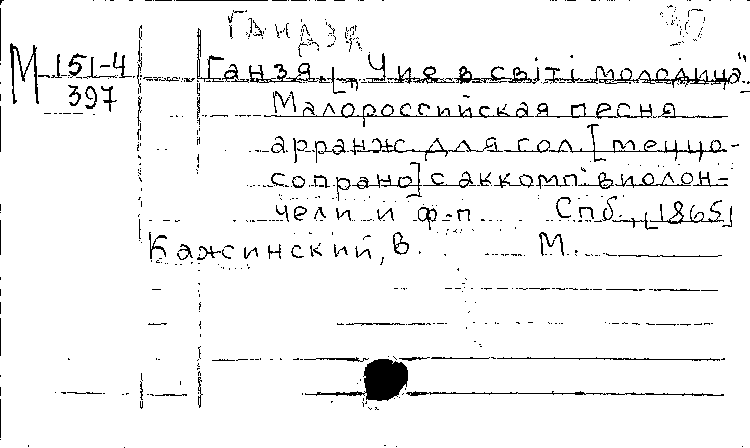 Гандзя 30
М 151-4
397
Ганзя. [„Чие в світі молодица"]
Малороссийская песня
арранж. для гол. [меццо-
сопрано] с аккомп. виолон-
чели и ф-п. Спб., [1865]
Кажинский, В. М.